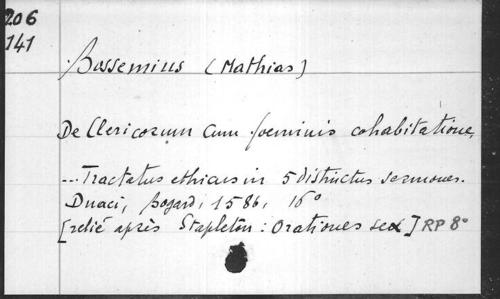 206
141
Bossemius (Mathias)
De Clericorum cum foeminis cohabitatione,
... Tractatus ethicus in 5 distinctus sermones.
Duaci, Bogard, 1586, 16°
[relié après Stapleton: Orationes sex] RP 8°